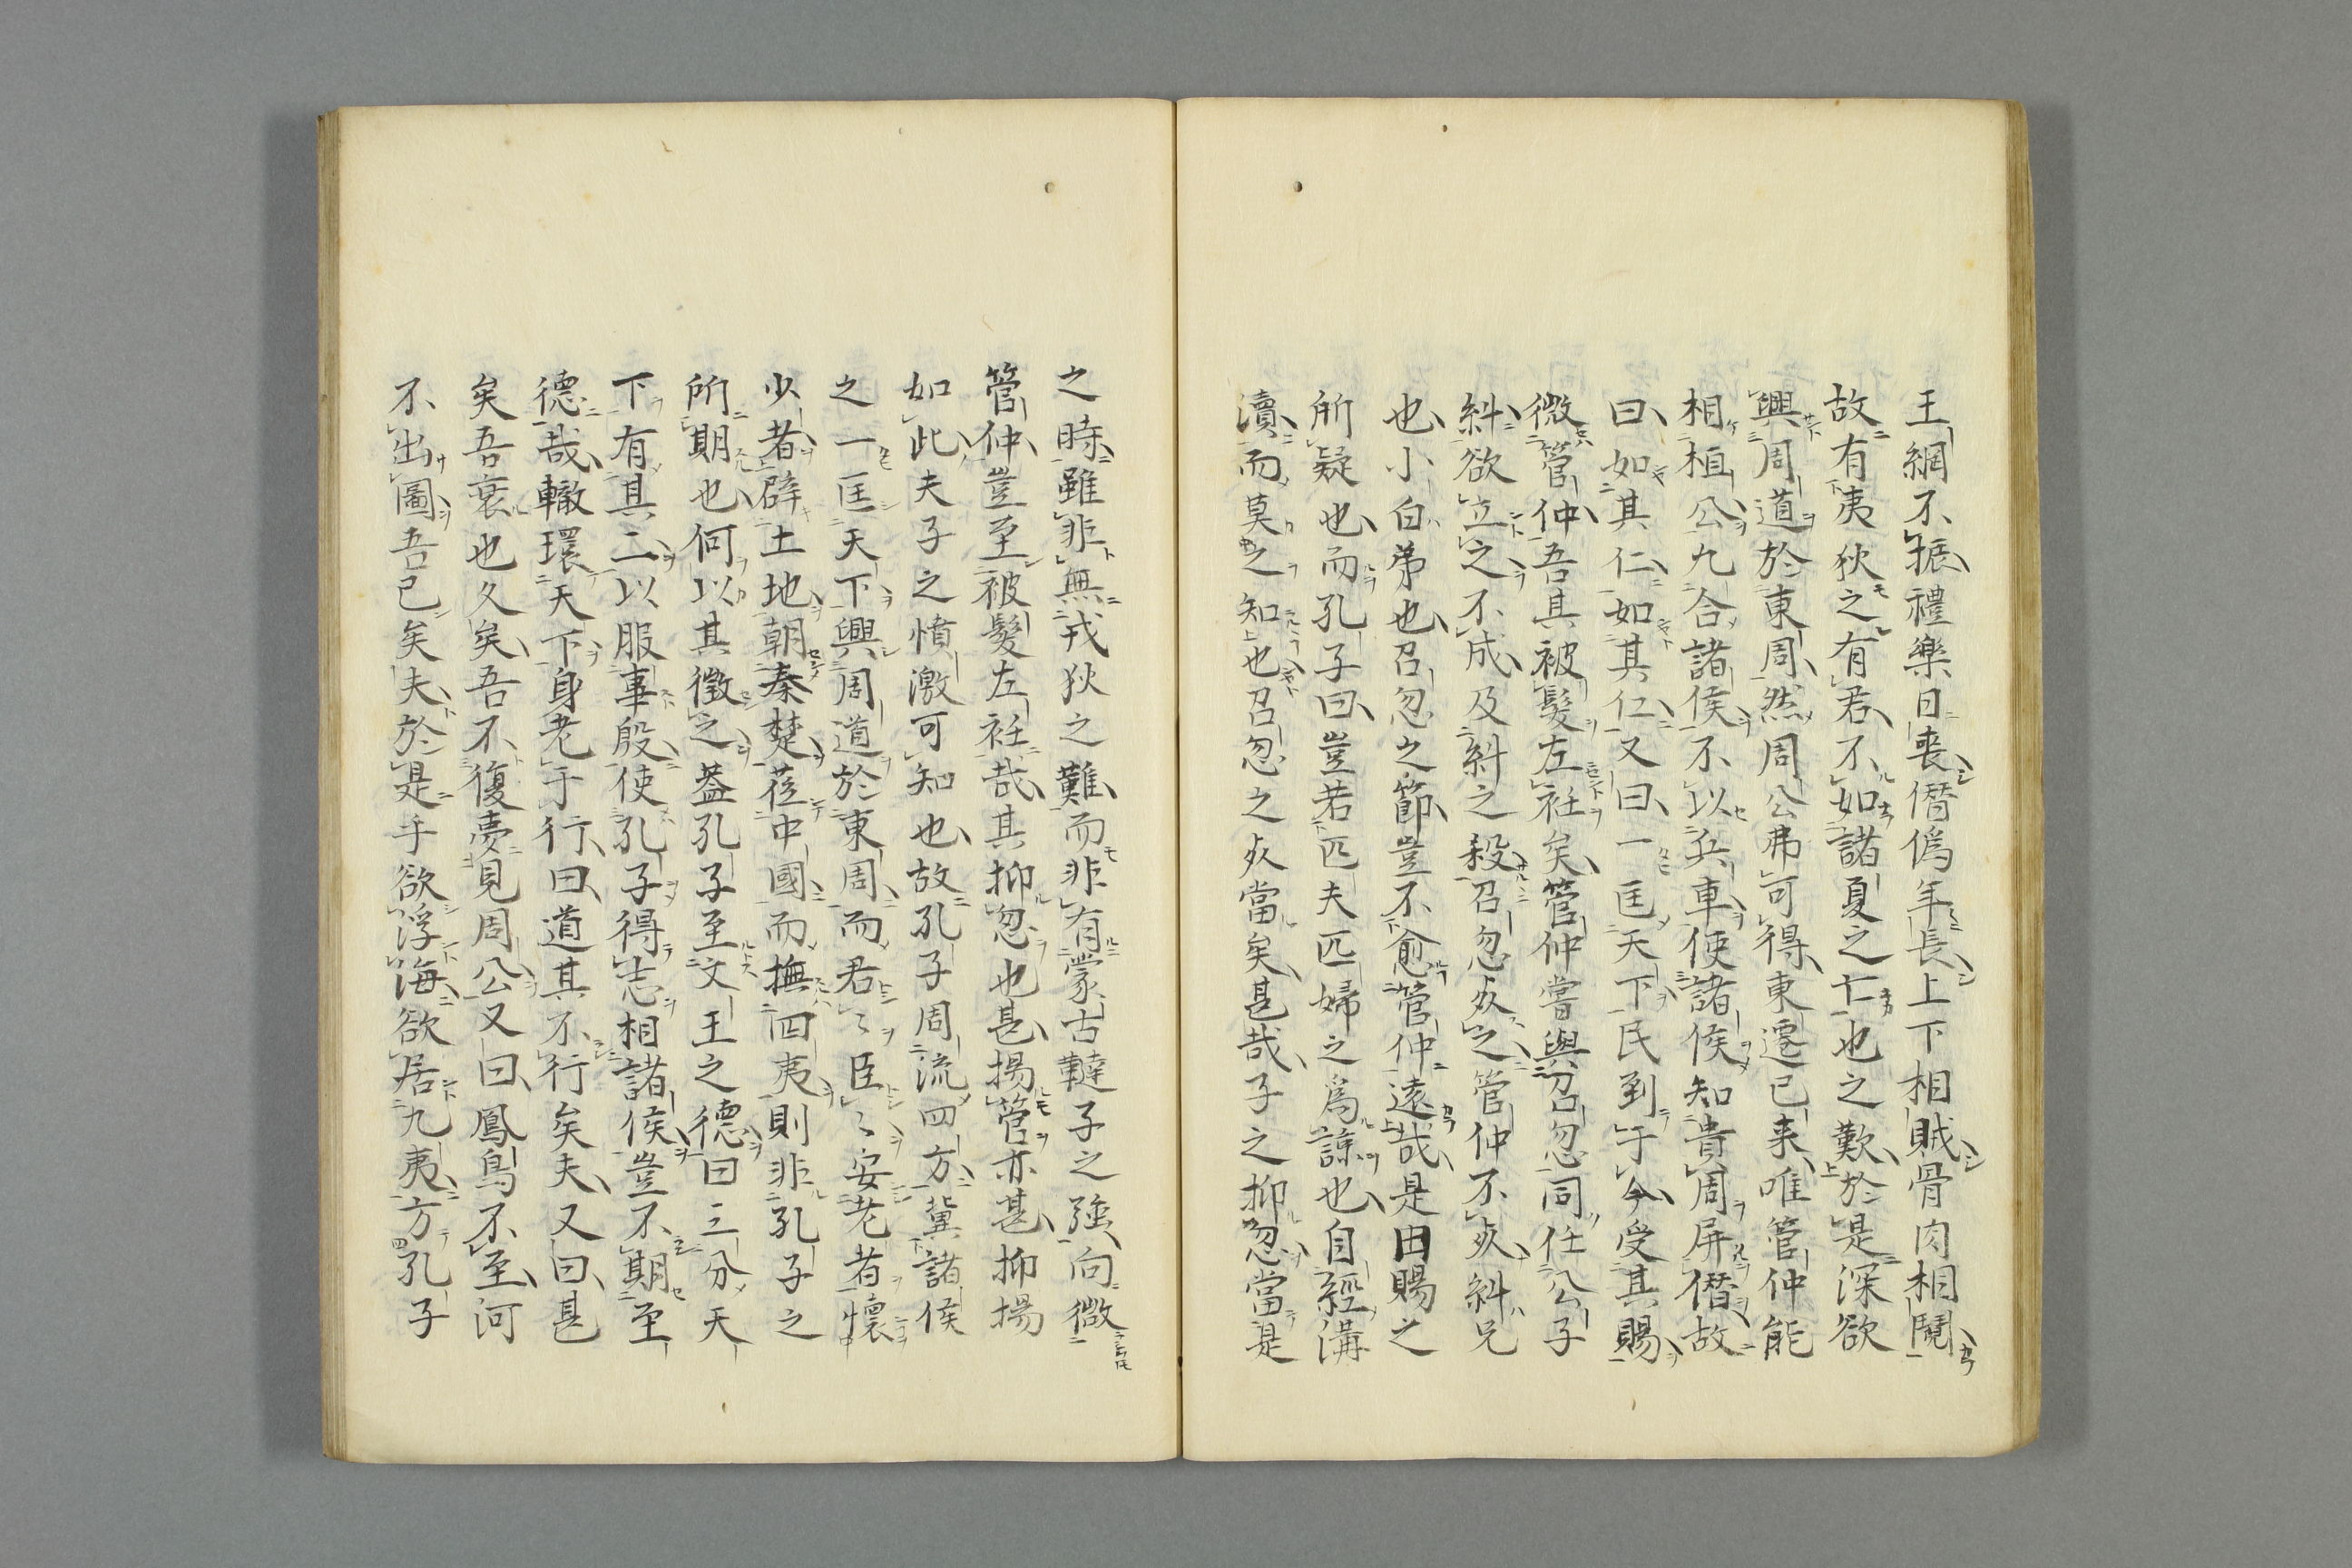 王綱不振禮樂日喪僭僞年長上下相賊骨肉相鬩
故有夷狄之有君不如諸夏之亡也之歎於是深欲
興周道於東周然周公弗可得東遷已来唯管仲能
相桓公九合諸侯不以兵車使諸侯知貴周屏僭故
曰如其仁如其仁又曰一匡天下民到于今受其賜
微管仲吾其被髮左衽矣管仲嘗與召忽同任公子
糾欲立之不成及糾之殺召忽死之管仲不死糾兄
也小白弟也召忽之節豈不愈管仲遠哉是由賜之
所疑也而孔子曰豈若匹夫匹婦之爲諒也自經溝
瀆而莫之知也召忽之死當矣甚哉子之抑忽當是
之時雖非無戎狄之難而非有蒙古韃子之強向微
管仲豈至被髮左衽哉其抑忽也甚揚管亦甚抑揚
如此夫子之憤激可知也故孔子周流四方冀諸侯
之一匡天下興周道於東周而君〻臣〻安老者懷
少者辟土地朝秦楚莅中國而撫四夷則非孔子之
所期也何以其徵之葢孔子至文王之德曰三分天
下有其二以服事殷使孔子得志相諸侯豈不期至
德哉轍環天下身老于行曰道其不行矣夫又曰甚
矣吾衰也久矣吾不復夢見周公又曰鳳鳥不至河
不出圖吾已矣夫於是乎欲浮海欲居九夷方孔子